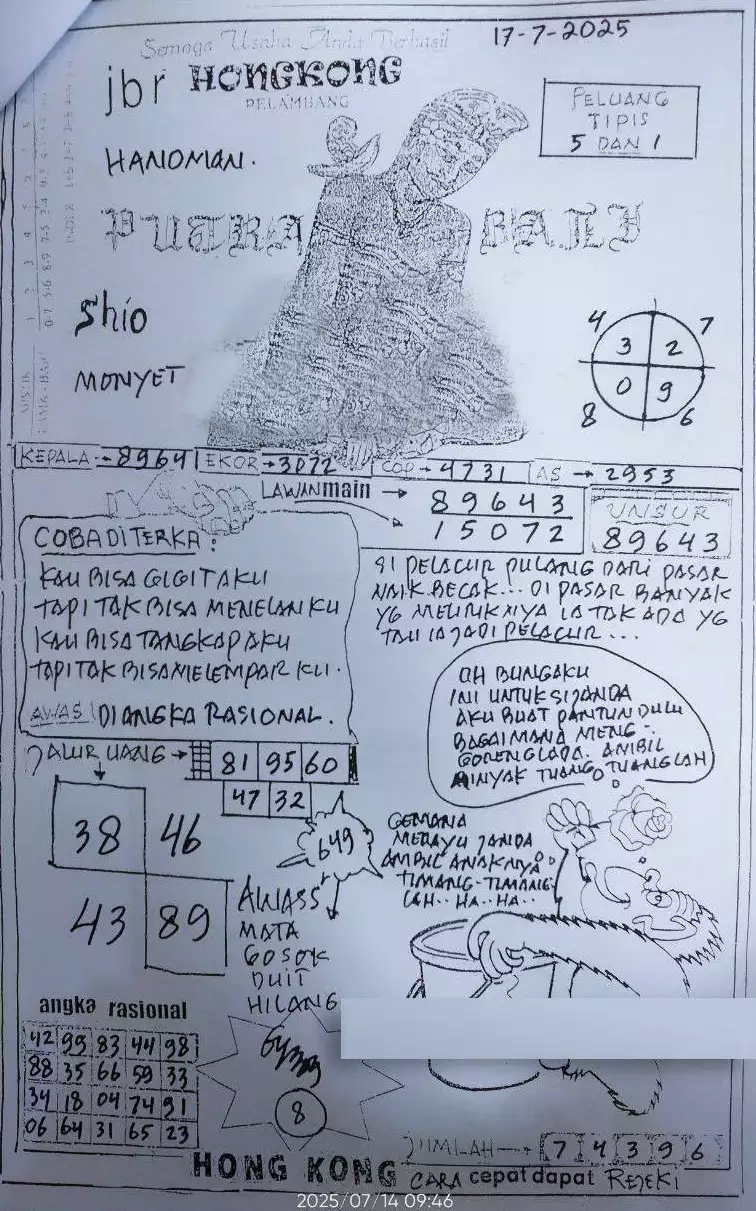 Semoga Usaha Anda Berhasil
17-7-2025
jbr HONGKONG
PELAMBANG
PELUANG
TIPIS
5 DAN 1
HANOMAN.
PUTRA BALI
Shio
MONYET
4 7
3 2
0 9
8 6
KEPALA → 89641 EKOR → 3072 COP → 4731 AS → 2953
LAWAN main → 89643
15072
UNSUR
89643
COBA DITERKA:
KAU BISA GIGIT AKU
TAPI TAK BISA MENELAN KU
KAU BISA TANGKAP AKU
TAPI TAK BISA MELEMPAR KU.
AWAS DIANGKA RASIONAL.
SI PELACUR PULANG DARI PASAR
NAIK BECAK... DI PASAR BANYAK
YG MELIRIKNYA IA TAK ADA YG
TAU IA JADI PELACUR...
OH BUNGAKU
INI UNTUK SI JANDA
AKU BUAT PANTUN DULU
BAGAIMANA MENG-
GORENG LADA. AMBIL
MINYAK TUANG TUANGLAH
JALUR UANG → 81 95 60
47 32
38 46
43 89
649
GEMANA
MERAYU JANDA
AMBIL ANAKNYA
TIMANG-TIMANG
LAH.. HA.. HA..
AWASS
MATA
GOSOK
DUIT
HILANG
angka rasional
42 99 83 44 98
88 35 66 59 33
34 18 04 74 91
06 64 31 65 23
8
JUMLAH → 7 4 3 9 6
HONG KONG CARA cepat dapat REJEKI
2025/07/14 09:46